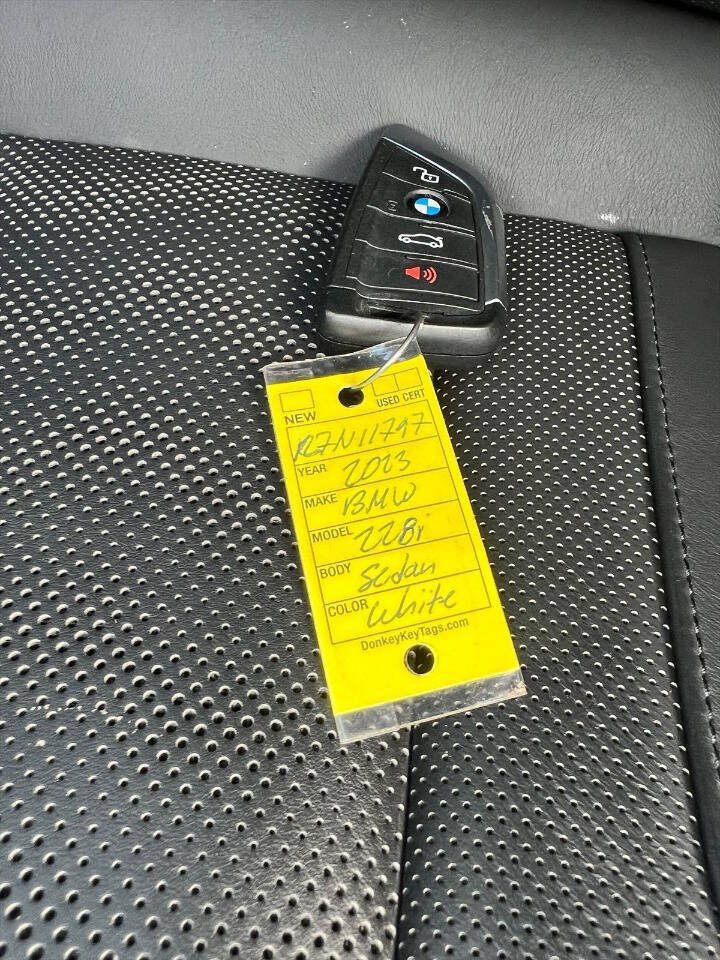 NEW USED CERT
R7N11797
YEAR 2023
MAKE BMW
MODEL 228i
BODY Sedan
COLOR White
DonkeyKeyTags.com